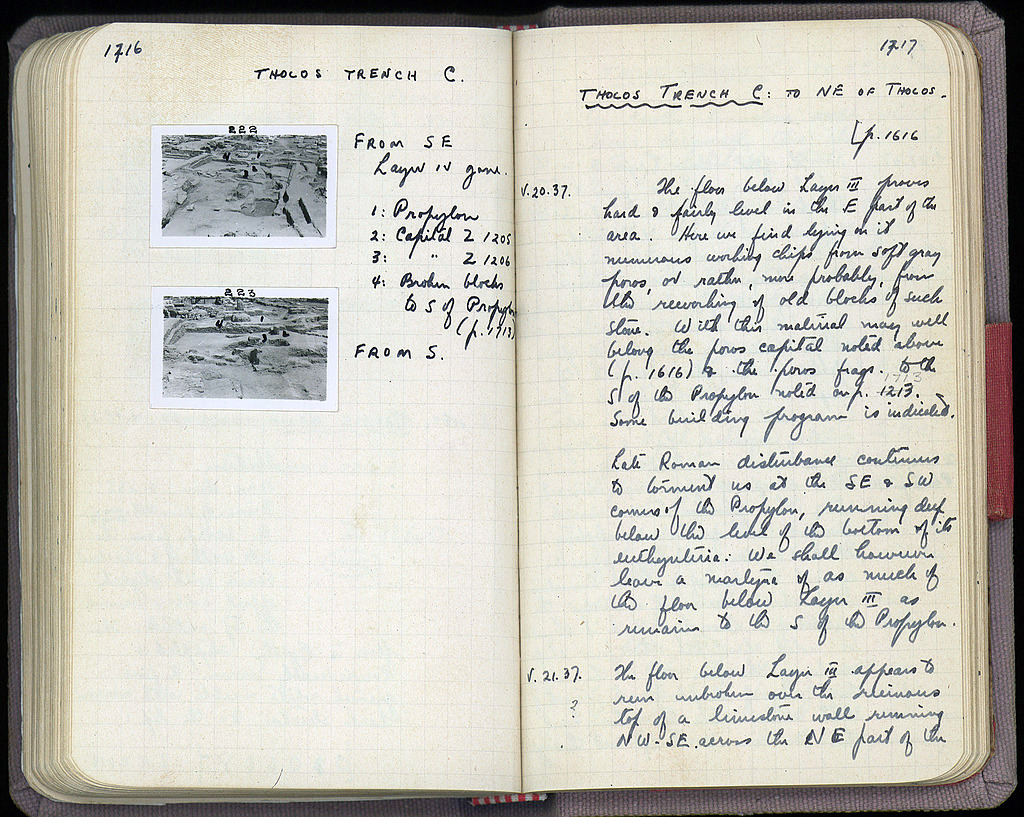 1716
THOLOS TRENCH C.
222
FROM SE
Layer IV gone.
1: Propylon
2: Capital Z 1205
3: " Z 1206
4: Broken blocks
to S of Propylon
(p. 1713)
223
FROM S.
1717
THOLOS TRENCH C: TO NE OF THOLOS.
[p. 1616
V. 20. 37.
The floor below Layer III proves
hard & fairly level in the E part of the
area. Here we find lying on it
numerous working chips from soft gray
poros, or rather, more probably, from
the reworking of old blocks of such
stone. With this material may well
belong the poros capital noted above
(p. 1616) & the poros frags. to the
1713
S of the Propylon noted on p. 1213.
Some building program is indicated.
Late Roman disturbance continues
to torment us at the SE & SW
corners of the Propylon, running deep
below the level of the bottom of its
euthynteria. We shall however
leave a martyra of as much of
the floor below Layer III as
remains to the S of the Propylon.
V. 21. 37.
The floor below Layer III appears to
?
run unbroken over the ruinous
top of a limestone wall running
NW-SE across the NE part of the